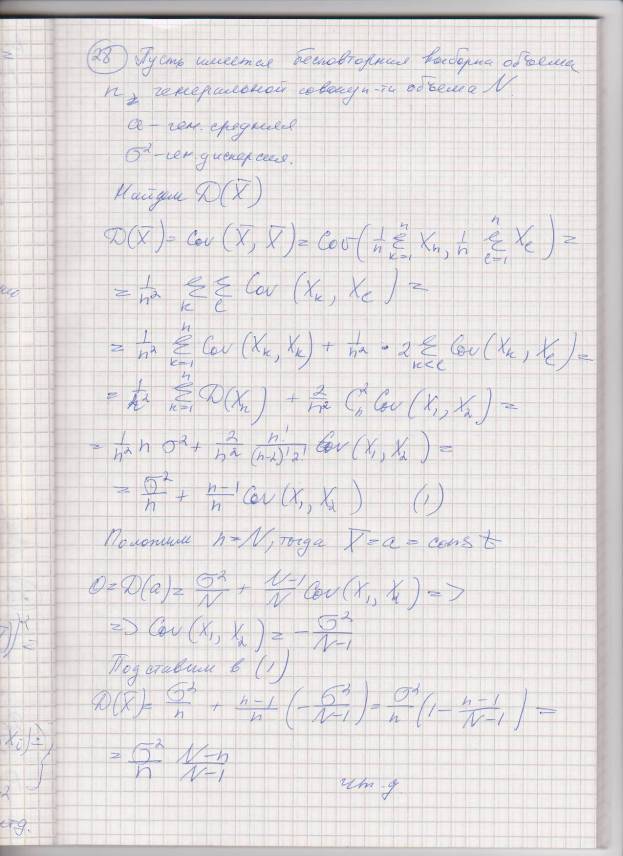 28 Пусть имеется бесповторная выборка объема
n из генеральной совокуп-ти объема N.
a - ген. средняя
σ² - ген. дисперсия.
Найдем D(X̄)
D(X̄) = Cov(X̄, X̄) = Cov(1/n Σ_{k=1}^{n} X_k, 1/n Σ_{l=1}^{n} X_l) =
= 1/n² Σ_k Σ_l Cov(X_k, X_l) =
= 1/n² Σ_{k=1}^{n} Cov(X_k, X_k) + 1/n² · 2 Σ_{k<l} Cov(X_k, X_l) =
= 1/n² Σ_{k=1}^{n} D(X_k) + 2/n² C_n² Cov(X₁, X₂) =
= 1/n² n σ² + 2/n² n!/((n-2)!2!) Cov(X₁, X₂) =
= σ²/n + (n-1)/n Cov(X₁, X₂) (1)
Положим n = N, тогда X̄ = a = const
0 = D(a) = σ²/N + (N-1)/N Cov(X₁, X₂) =>
=> Cov(X₁, X₂) = - σ²/(N-1)
Подставим в (1)
D(X̄) = σ²/n + (n-1)/n (- σ²/(N-1)) = σ²/n (1 - (n-1)/(N-1)) =
= σ²/n (N-n)/(N-1)
чт.д